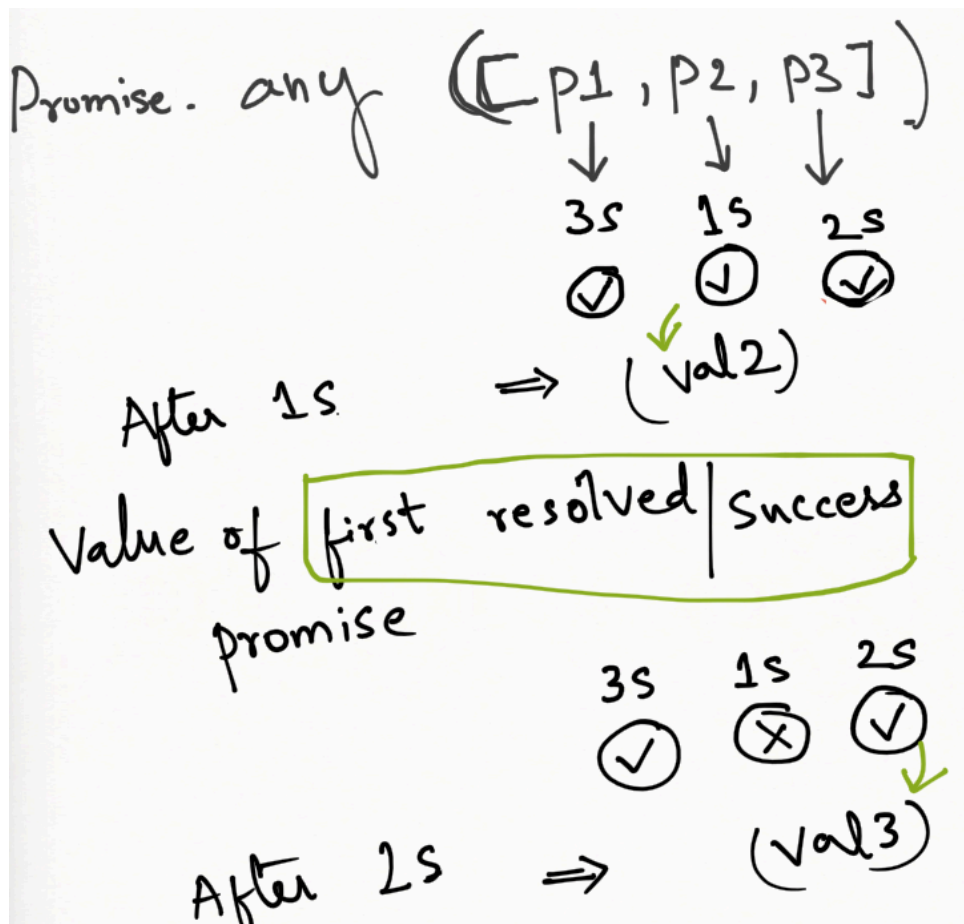 Promise. any ([p1, p2, p3])
3s 1s 2s
After 1s ⇒ (val2)
value of first resolved | Success
promise
3s 1s 2s
After 2s ⇒ (val3)